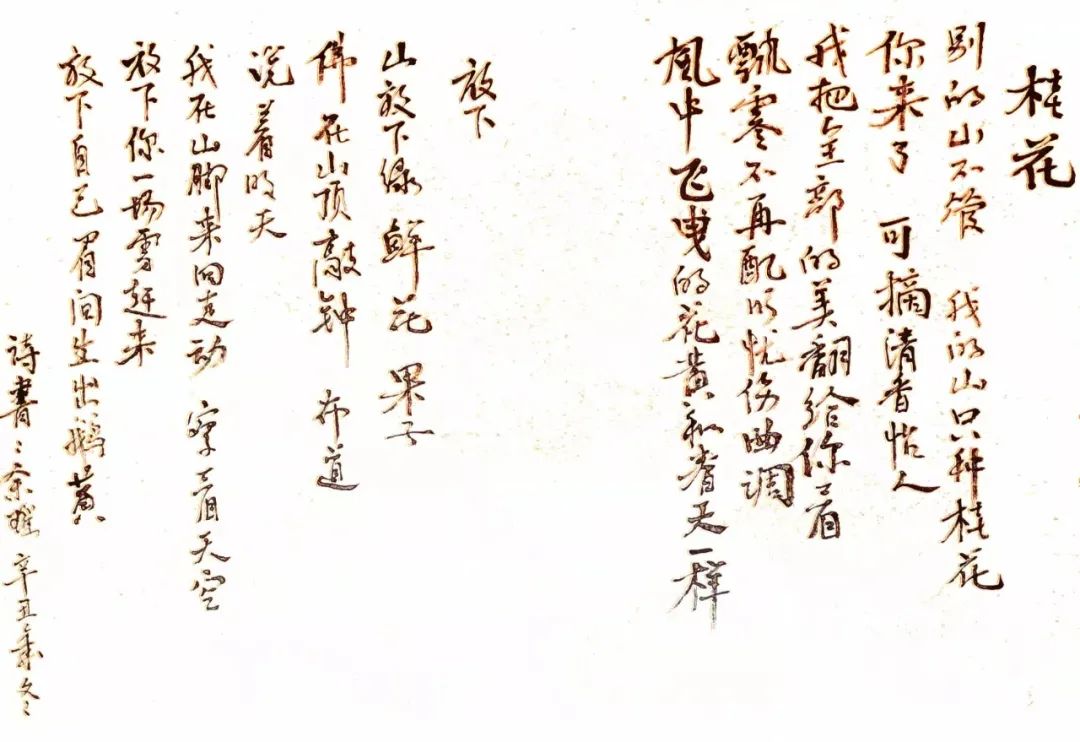 桂花
别的山不管 我的山只种桂花
你来了 可摘清香怡人
我把全部的美翻给你看
飘零不再配以忧伤曲调
風中飞曳的花黄和春天一样
放下
山放下绿 鲜花 果子
佛在山顶敲钟 布道
说着明天
我在山脚来回走动 穿着天空
放下你一场雪赶来
放下自己眉间生出鹅黄
诗书:宗璀辛丑年冬